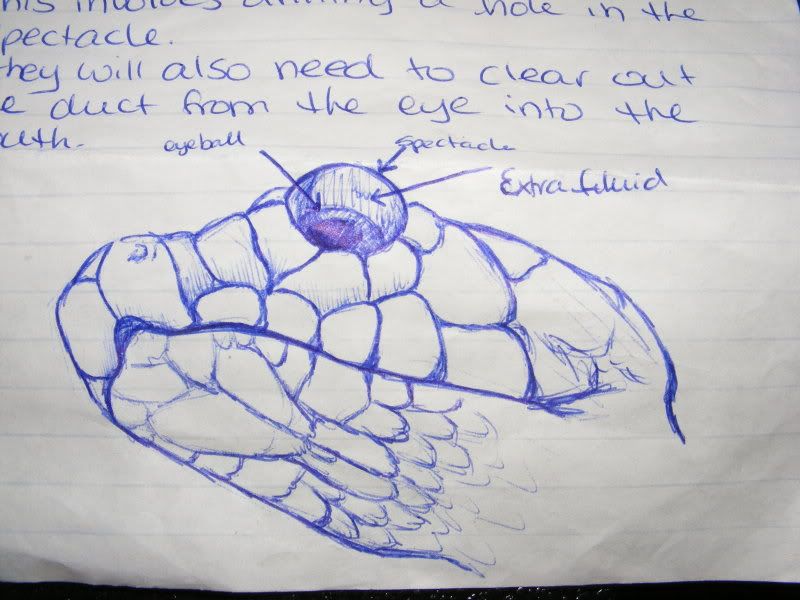 his involves drilling a hole in the
pectacle.
hey will also need to clear out
e duct from the eye into the
uth.
eyeball
spectacle
Extra fluid